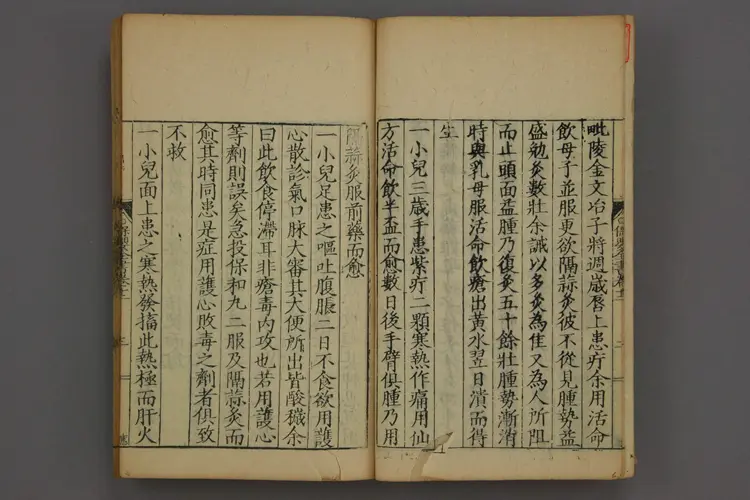 毗陵金文冶子將週歲唇上患疔余用活命
飲母子並服更欲隔蒜灸彼不從見腫勢益
盛勉灸數壯余誡以多灸為佳又為人所阻
而止頭面益腫乃復灸五十餘壯腫勢漸消
時與乳母服活命飲瘡出黃水翌日潰而得
生
一小兒三歲手患紫疔二顆寒熱作痛用仙
方活命飲半盃而愈數日後手臂俱腫乃用
隔蒜灸服前藥而愈
一小兒足患之嘔吐腹脹二日不食欲用護
心散診氣口脉大審其大便所出皆酸穢余
曰此飲食停滯耳非瘡毒內攻也若用護心
等劑則誤矣急投保和丸二服及隔蒜灸而
愈其時同患是症用護心敗毒之劑者俱致
不救
一小兒面上患之寒熱發搐此熱極而肝火